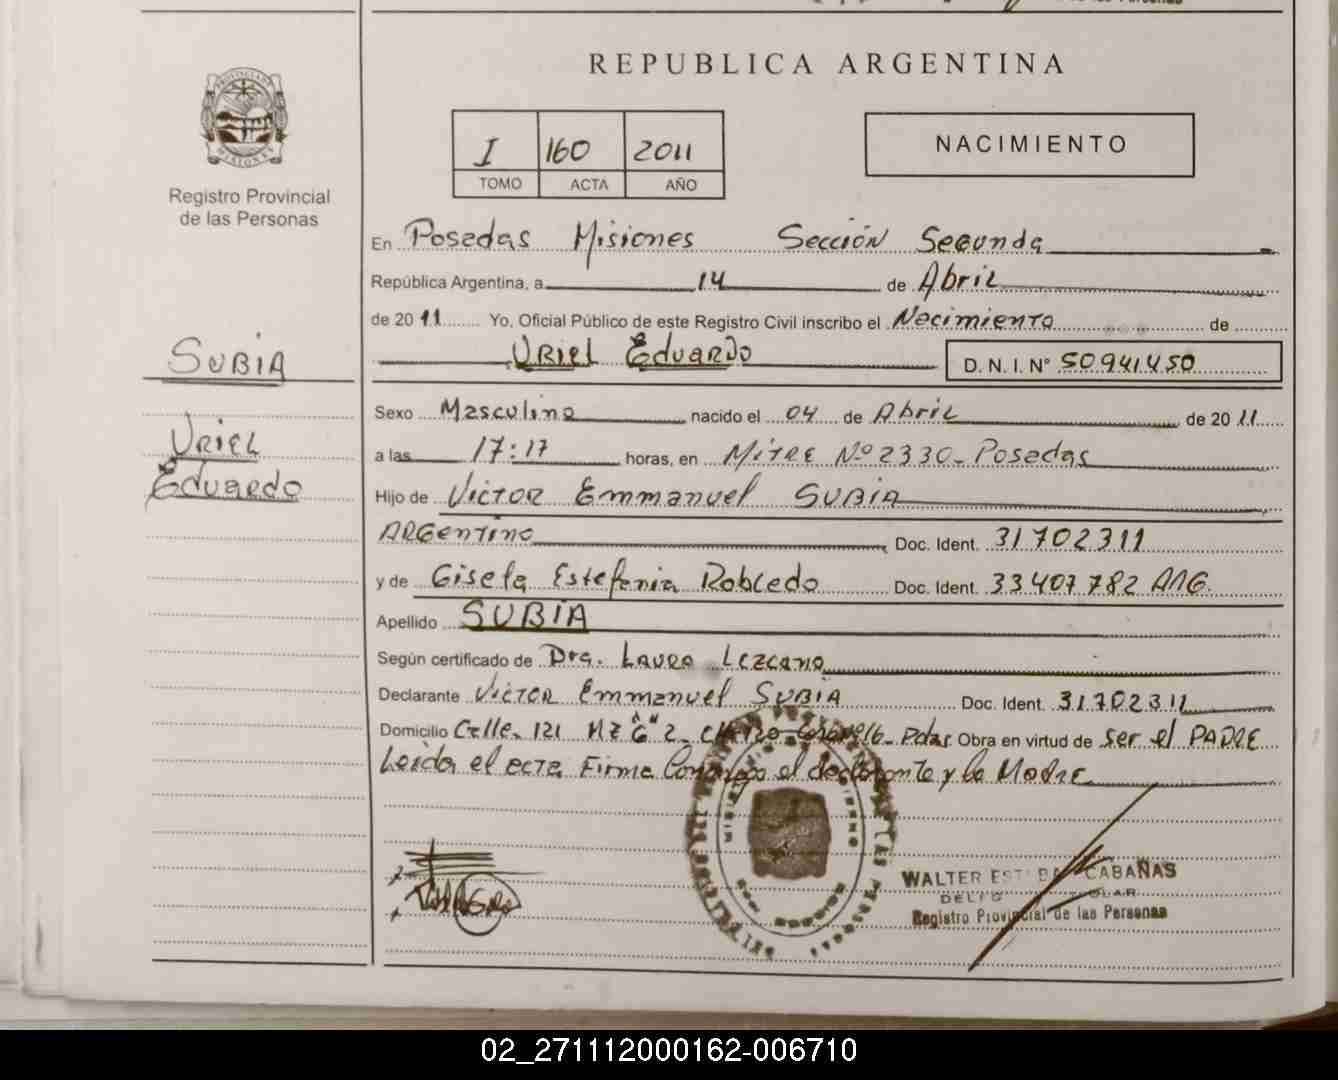 REPUBLICA ARGENTINA
PROVINCIA DE MISIONES
Registro Provincial
de las Personas
I 160 2011
TOMO ACTA AÑO
NACIMIENTO
En Posadas Misiones Sección Segunda
República Argentina, a 14 de Abril
de 2011 Yo, Oficial Público de este Registro Civil inscribo el Nacimiento de
Uriel Eduardo D.N.I. Nº 50941450
SUBIA
Uriel
Eduardo
Sexo Masculino nacido el 04 de Abril de 2011
a las 17:17 horas, en Mitre Nº 2330_ Posadas
Hijo de Victor Emmanuel SUBIA
Argentino Doc. Ident. 31702311
y de Gisela Estefania Robledo Doc. Ident. 33407782 ARG.
Apellido SUBIA
Según certificado de Dra. Laura Lezcano
Declarante Victor Emmanuel SUBIA Doc. Ident. 31702311
Domicilio Calle 121 Mz "G" 2_ Pdas Obra en virtud de ser el PADRE
Leída el acta Firma Conmigo el declarante y la Madre
WALTER CABAÑAS
Registro Provincial de las Personas
02_271112000162-006710